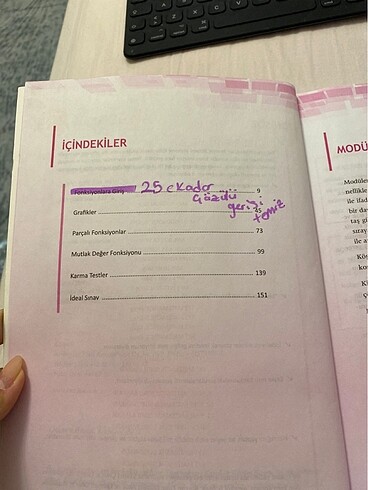 İÇİNDEKİLER
Fonksiyonlara Giriş 25 e kadar 9
çözülü
gerisi
temiz
Grafikler 45
Parçalı Fonksiyonlar 73
Mutlak Değer Fonksiyonu 99
Karma Testler 139
İdeal Sınav 151
MODÜ
Modüler
nellikle
ile ifad
bir da
taş gi
sıray
ile a
Köş